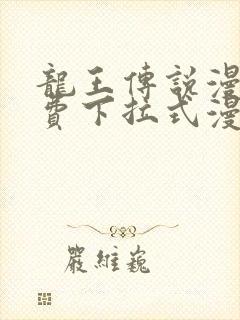 龍王傳說漫
費下拉式漫
嚴維巍